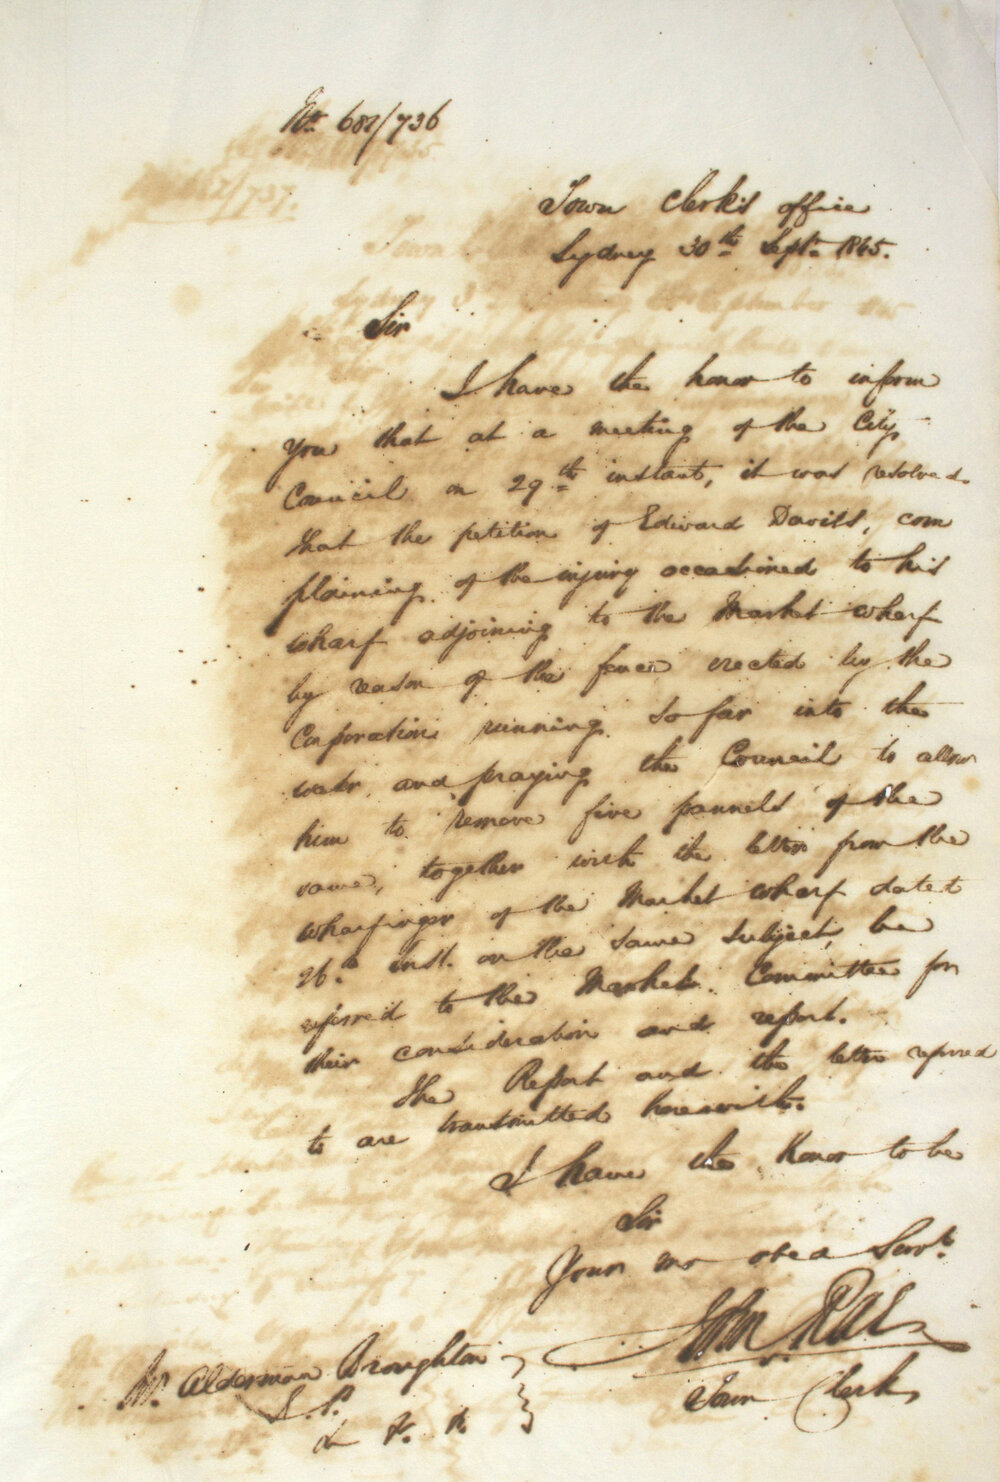 No. 682/736
Town Clerk's office
Sydney 30th Septr. 1845.
Sir
I have the honor to inform
you that at a meeting of the City
Council on 29th instant, it was resolved
that the petition of Edward Davill, com
plaining of the injury occasioned to his
wharf adjoining to the Market wharf
by reason of the fence erected by the
Corporation running so far into the
water, and praying the Council to allow
him to remove five pannels of the
same, together with the letter from the
wharfinger of the Market wharf dated
26th Inst. on the same subject, be
referred to the Market Committee for
their consideration and report.
The Report and the letter referred
to are transmitted herewith.
I have the Honor to be
Sir
Your mo obed Servt.
John Rae
Town Clerk
Mr. Alderman Broughton